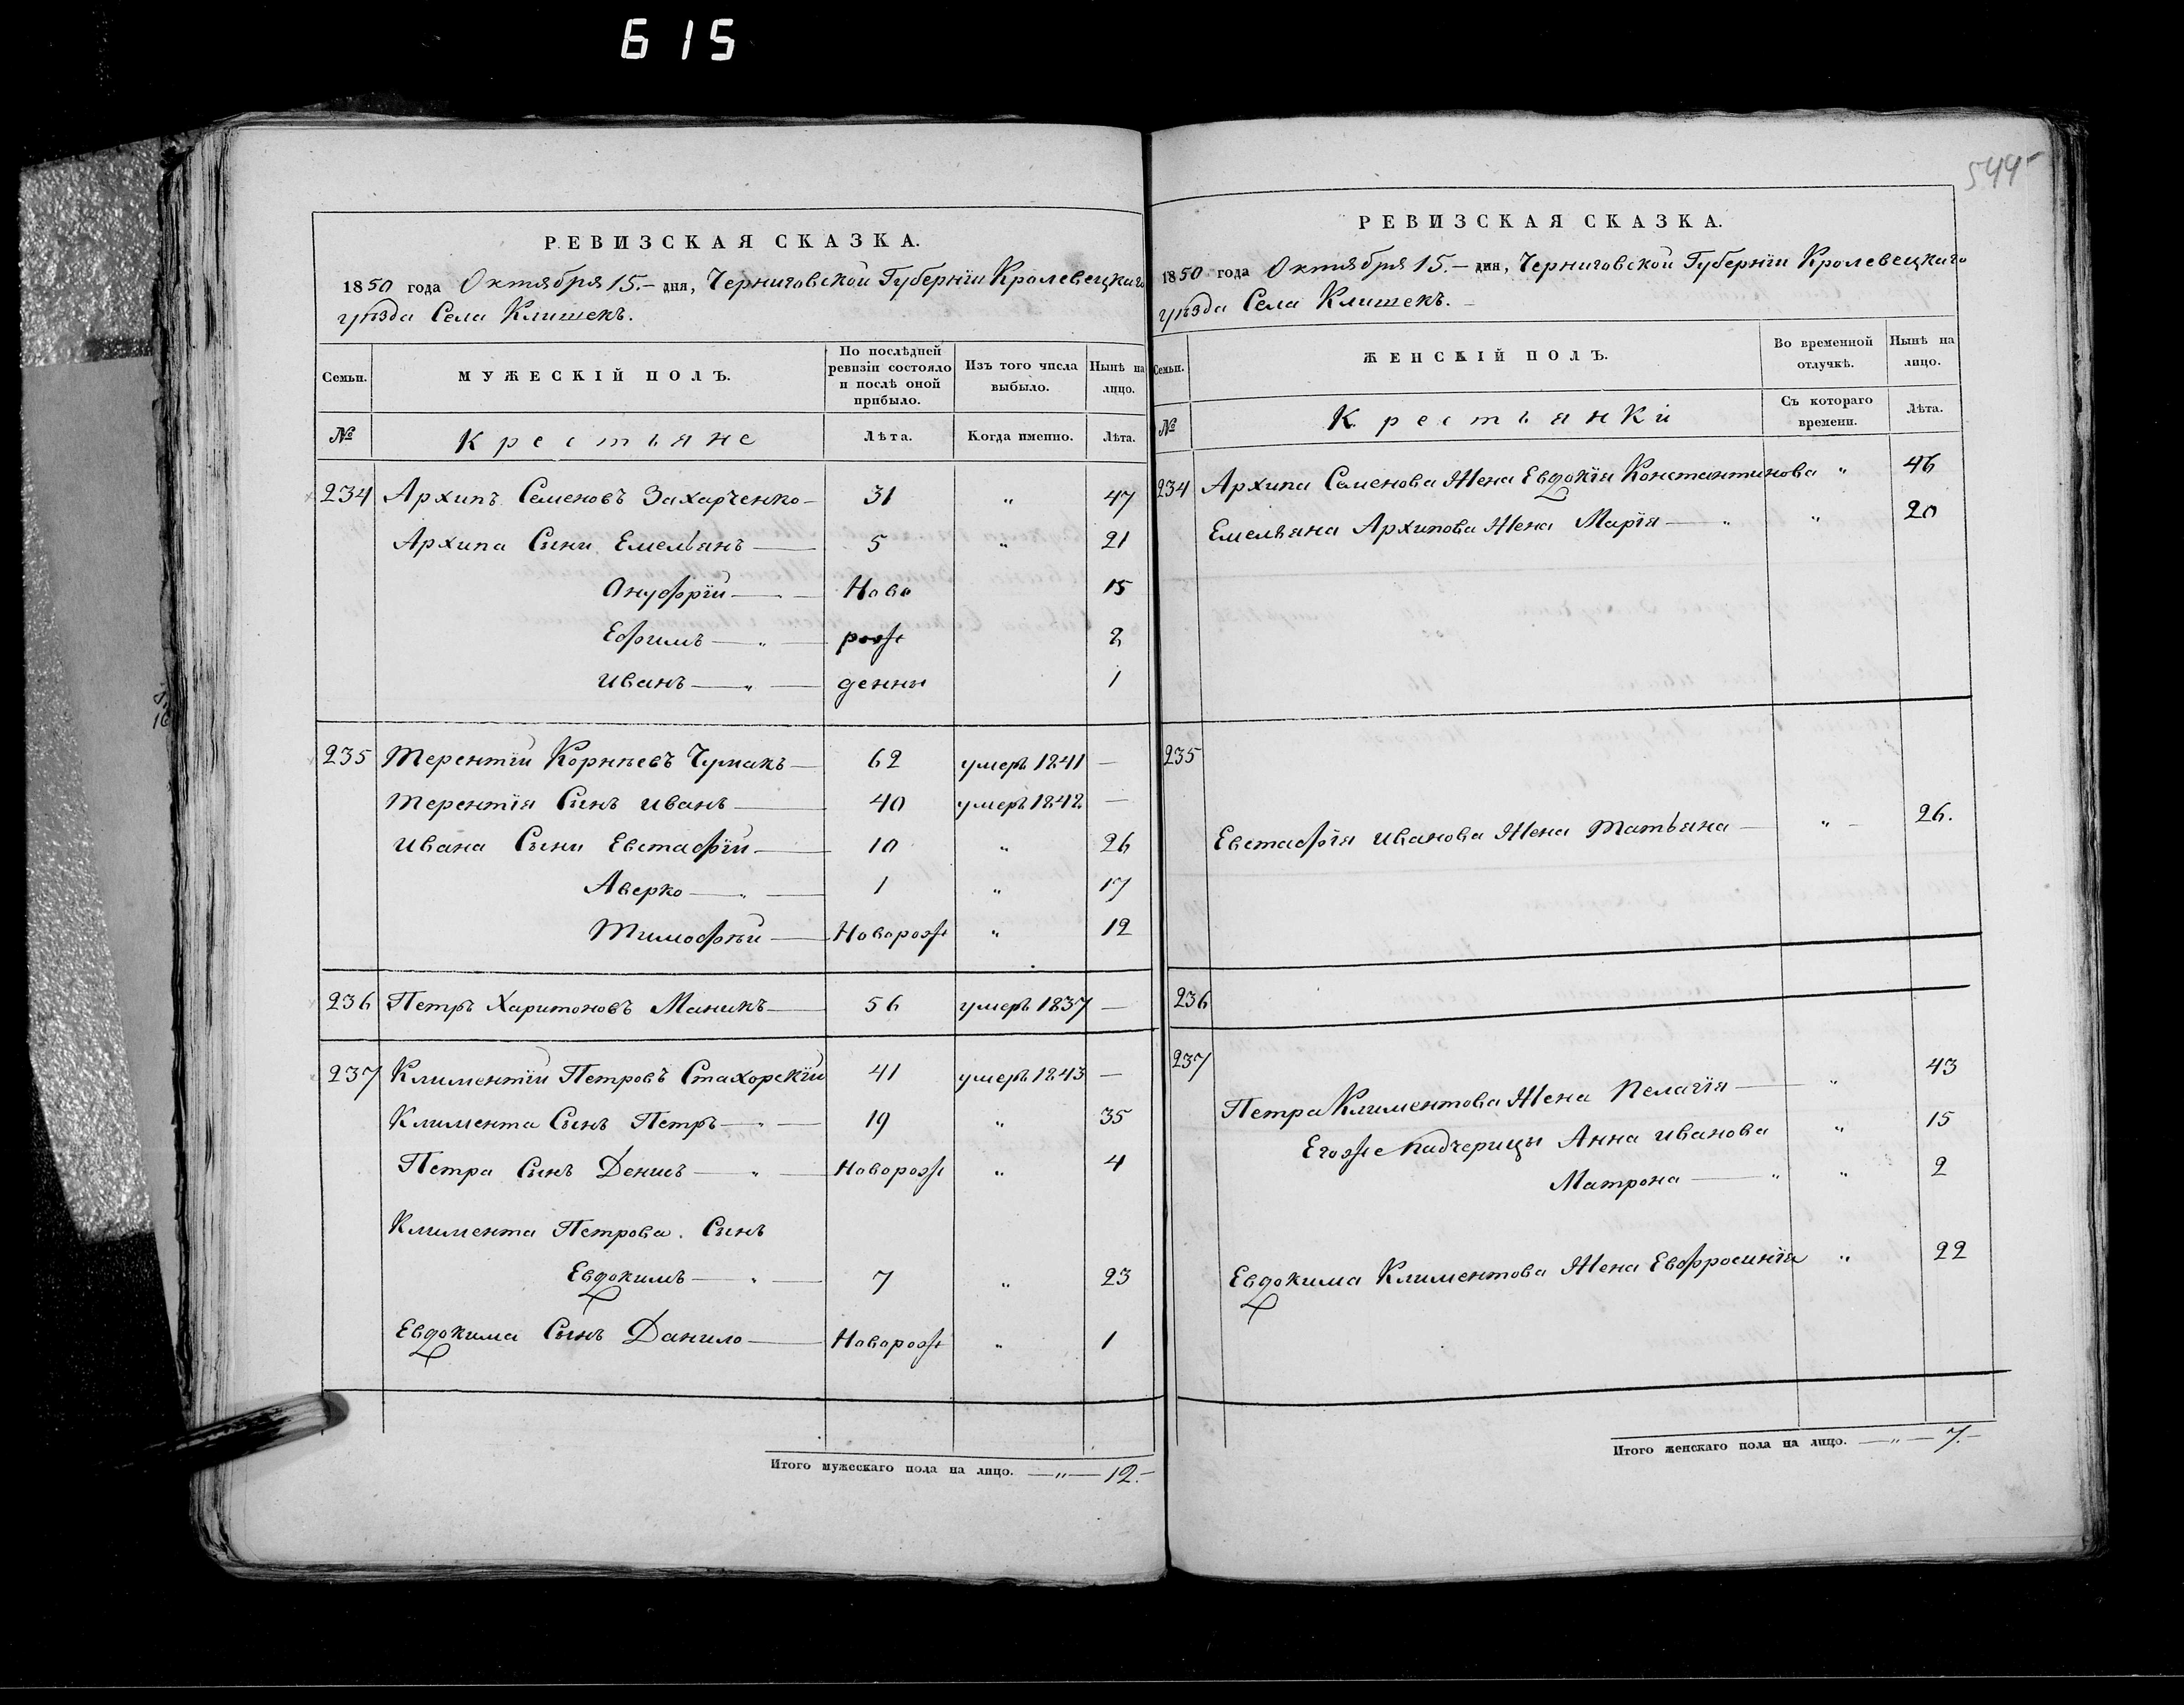 615
544
РЕВИЗСКАЯ СКАЗКА.
1850 года Октября 15.– дня, Черниговской Губернїи Кролевецкаго
уѣзда Села Клишекъ.
Семьи. МУЖЕСКІЙ ПОЛЪ. По послѣдней ревизіи состояло и послѣ оной прибыло. Изъ того числа выбыло. Нынѣ на лицо.
№ Крестьяне Лѣта. Когда именно. Лѣта.
234 Архипъ Семеновъ Захарченко – 31 " 47
Архипа Сыни Емельянъ — 5 " 21
Онуфрїй — Ново 15
Ефимъ — " — рож 2
Иванъ — " — денны 1
235 Терентїй Корнѣевъ Чумакъ — 62 умеръ 1841 —
Терентїя Сынъ Иванъ — 40 умеръ 1842 —
Ивана Сыни Евстафїй — 10 " 26
Аверко — " — 1 " 17
Тимофѣй — Новорож " 12
236 Петръ Харитоновъ Маникъ — 56 умеръ 1837 —
237 Климентїй Петровъ Стахорскїй 41 умеръ 1843 —
Климента Сынъ Петръ — " — 19 " 35
Петра Сынъ Денисъ — " — Новорож " 4
Климента Петрова. Сынъ
Евдокимъ — " — 7 " 23
Евдокима Сынъ Данило — Новорож " 1
Итого мужескаго пола на лицо. — " — 12.–
РЕВИЗСКАЯ СКАЗКА.
1850 года Октября 15.– дня, Черниговской Губернїи Кролевецкаго
уѣзда Села Клишекъ. –
Семьи. ЖЕНСКІЙ ПОЛЪ. Во временной отлучкѣ. Нынѣ на лицо.
№ Крестьянки Съ котораго времени. Лѣта.
234 Архипа Семенова Жена Евдокїя Константинова " 46
Емельяна Архипова Жена Марїя — " " 20
235
Евстафїя Иванова Жена Татьяна — " – 26.
236
237
Петра Климентова Жена Пелагїя — " 43
Егоже Падчерицы Анна Иванова " 15
Матрона — " " 2
Евдокима Климентова Жена Евфросинїя " 22
Итого женскаго пола на лицо. — " — 7.–